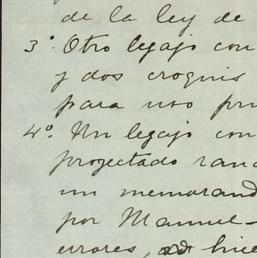 de la ley de
3º. Otro legajo con
y dos croquis
para uso
4º. Un legajo con
proyectado
un
por Manuel
errores,